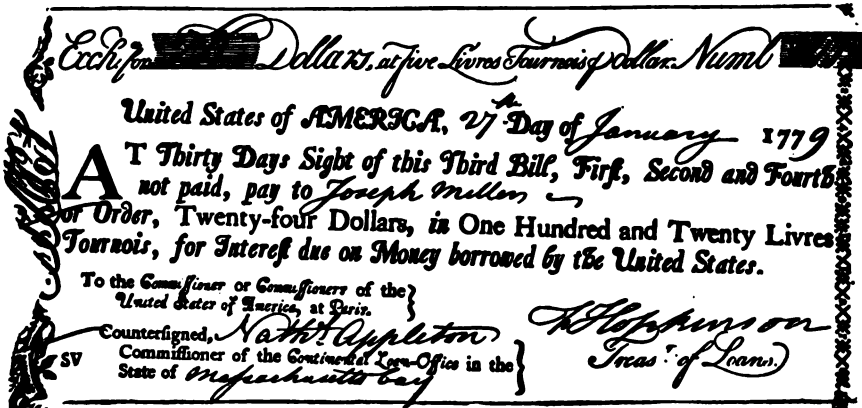 Exchᵃ for Dollars, at five Livres Tournois ⅌ Dollar. Numb
United States of AMERICA, 27th Day of January 1779
AT Thirty Days Sight of this Third Bill, First, Second and Fourth
not paid, pay to Joseph Mellen
or Order, Twenty-four Dollars, in One Hundred and Twenty Livres
Tournois, for Interest due on Money borrowed by the United States.
To the Commissioner or Commissioners of the
United States of America, at Paris.
Countersigned, Nathˡ. Appleton
F Hopkinson
SV Commissioner of the Continental Loan-Office in the
Treasʳ. of Loans.
State of Massachusetts bay